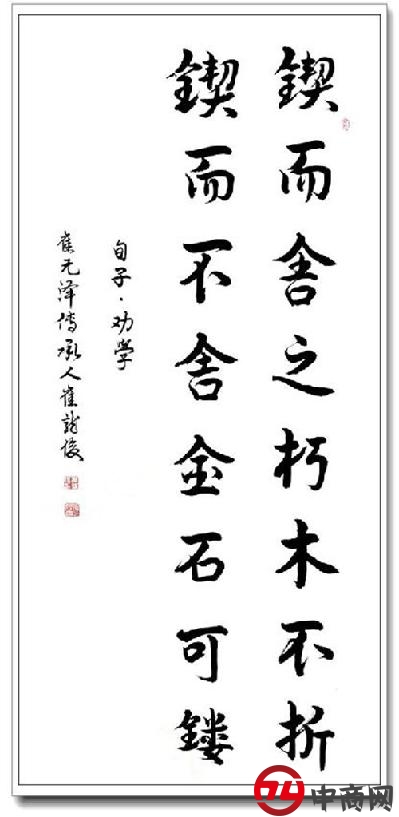 鍥而舍之朽木不折
鍥而不舍金石可镂
旬子·劝学
崔元泽传承人崔
中商网